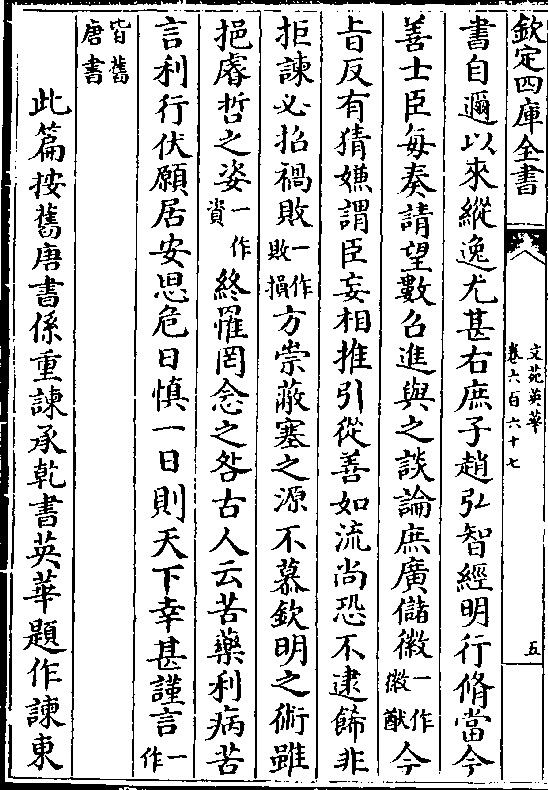 欽定四庫全書
文苑英華
卷六百六十七
五
書自邇以來縱逸尤甚右庶子趙弘智經明行脩當今
善士臣每奏請望數召進與之談論庶廣儲徽一作徽猷今
旨反有猜嫌謂臣妄相推引從善如流尚恐不逮餙非
拒諫必招禍敗一作敗損方崇蔽塞之源不慕欽明之術雖
挹睿哲之姿一作資終罹罔念之咎古人云苦藥利病苦
言利行伏願居安思危日慎一日則天下幸甚謹言一作
皆舊唐書
此篇按舊唐書係重諫承乾書英華題作諫東